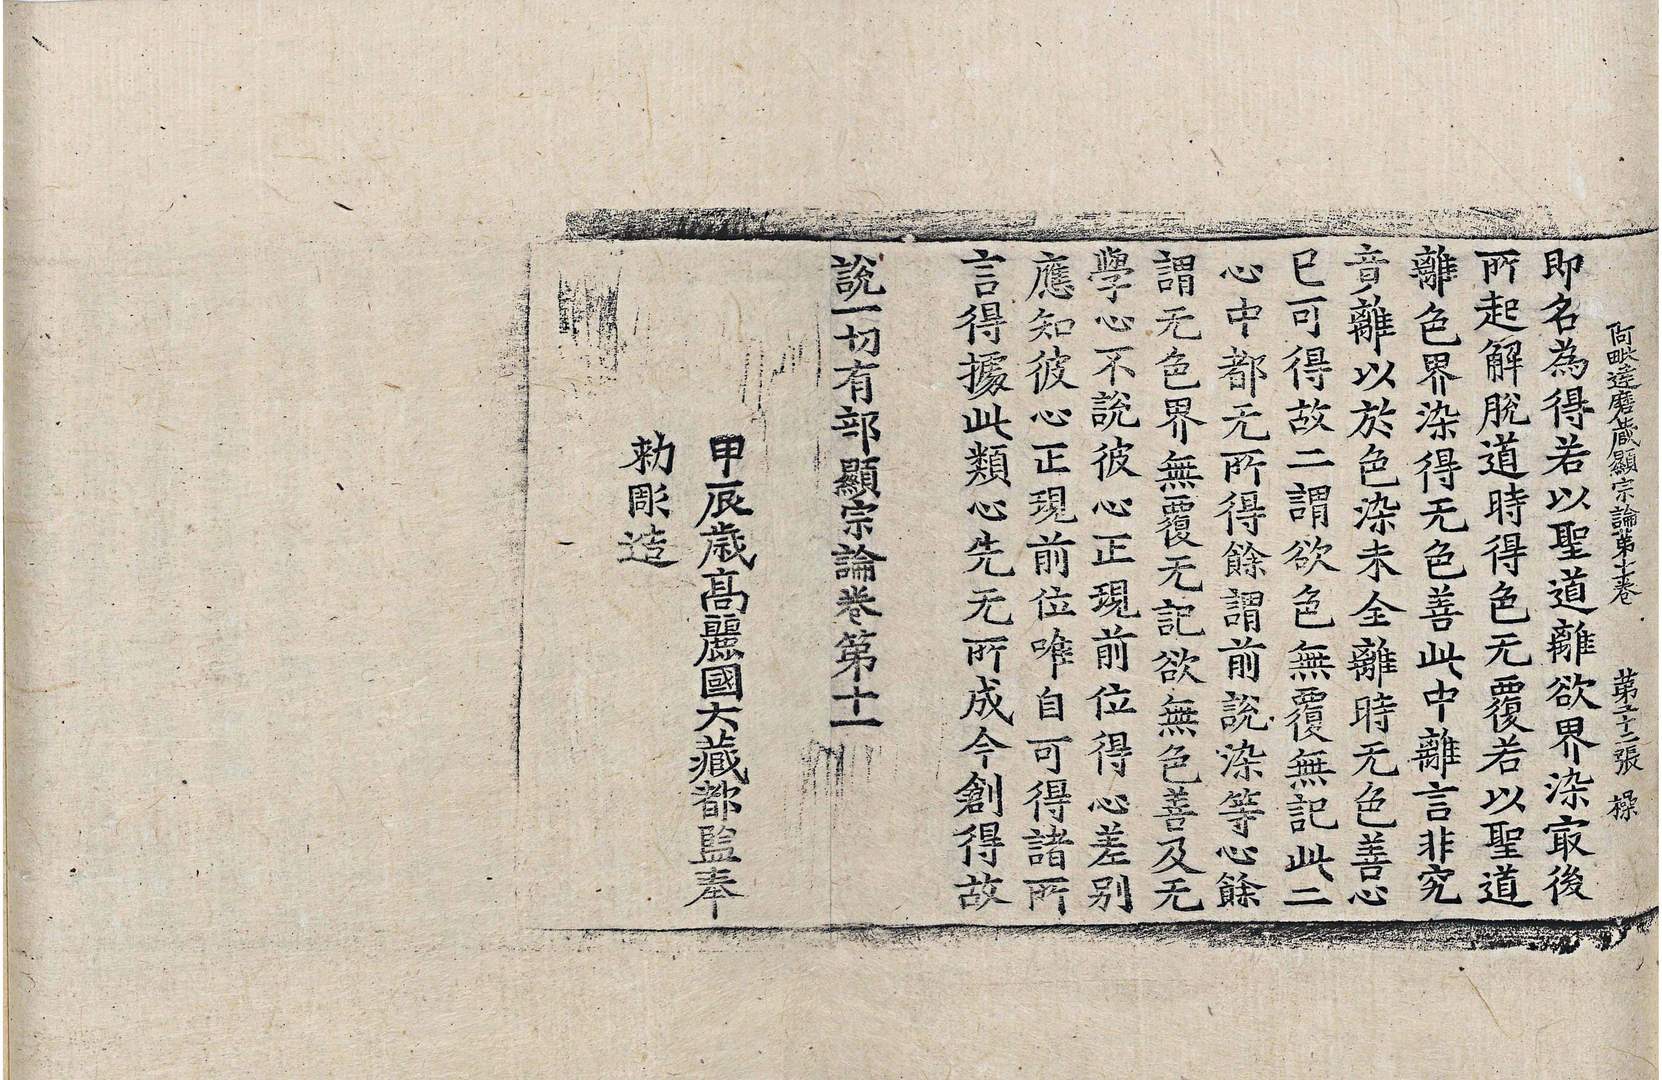 阿毗達磨蔵顯宗論第十一卷 第二十二張 操
即名為得若以聖道離欲界染㝡後
所起解脫道時得色无覆若以聖道
離色界染得无色善此中離言非究
竟離以於色染未全離時无色善心
已可得故二謂欲色無覆無記此二
心中都无所得餘謂前說染等心餘
謂无色界無覆无記欲無色善及无
學心不說彼心正現前位得心差别
應知彼心正現前位唯自可得諸所
言得據此類心先无所成今創得故
說一切有部顯宗論卷第十一
甲辰歳高麗國大藏都監奉
勑彫造